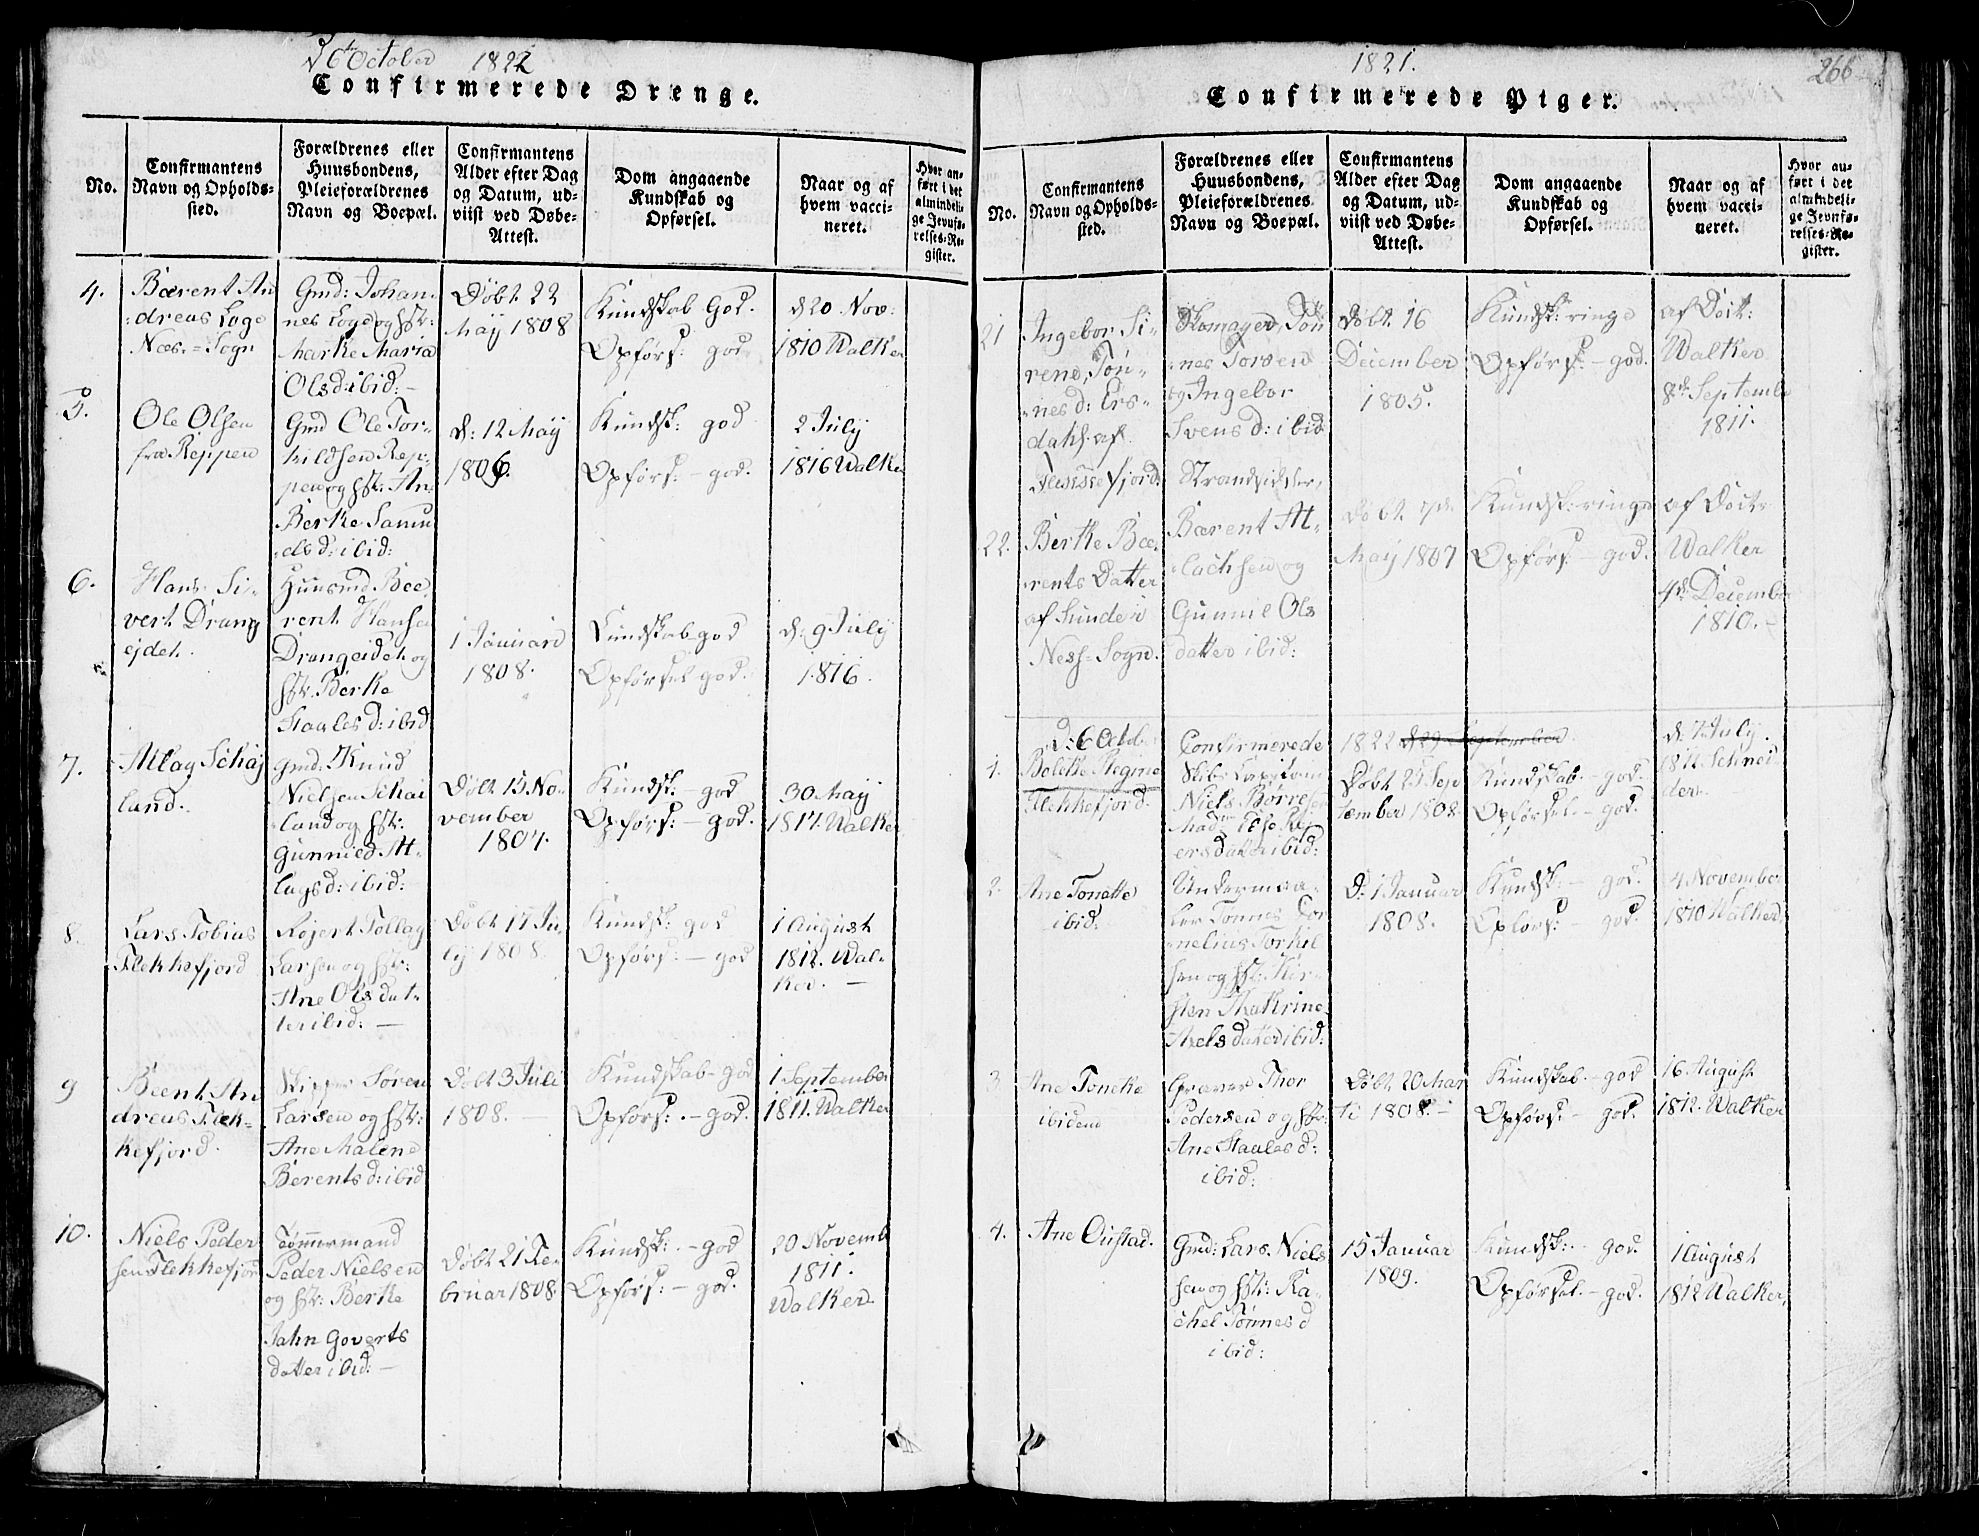 d 6te October 1822
Confirmerede Drenge.
No.
Confirmantens
Navn og Opholds-
sted.
Forældrenes eller
Huusbondens,
Pleieforældrenes
Navn og Boepæl.
Confirmantens
Alder efter Dag
og Datum, ud-
viist ved Døbe-
Attest.
Dom angaaende
Kundskab og
Opførsel.
Naar og af
hvem vacci-
neret.
Hvor an-
ført i det
almindeli-
ge Jevnfø-
relses-Re-
gister.
4.
Bærent An
dreas Loge
Næs = Sogn
Gmd: Johan-
nes Loge og hst:
Marke Maria
Olsd: ibid: -
Døbt 22
May 1808
Kundskab God.
Opførs: god
d 20 Nov:
1810 Walker
5.
Ole Olsen
fra Reppen
Gmd Ole Tor-
kildsen Rep-
pen og hst: An-
Berke Samu
elsd: ibid:
d: 12 May
1806.
Kundsk: god
Opførs: - god.
2 July
1816 Walker
6.
Hans Si-
vert Drang
ejdet.
Huusmd Bee
rent Hansen
Drangeidet og
hst. Berke
Staalesd: ibid
1 Januari
1808.
Kundskab god
Opførsel god.
d: 9 July
1816.
7.
Atlag Schaj
land.
Gmd: Knud
Nielsen Schai
land og hst:
Gunnied At-
lagsd: ibid:
Døbt 15 No-
vember
1807.
Kundsk. - god
Opførs: - god.
30 May
1817. Walker
8.
Lars Tobias
Flekkefjord
Rejert Tollag
Larsen og hst:
Ane Olsdat-
ter ibid: -
Døbt 17 Ju-
ly 1808.
Kundsk: god
Opførs: - god
1 August
1812. Wal-
ker. -
9
Beent An
dreas Flek-
kefjord.
Skipper Søren
Larsen og hst:
Ane Malene
Berentsd: ibid
Døbt 3 Juli
1808. -
Kundskab - god
Opførs: - god.
1 September
1811. Walker
10.
Niels Peder
sen Flekkefjor
Tømmermand
Peder Nielsen
og hst: Berke
Jahn Goverts
datter ibid: -
Døbt 21 Fe-
bruar 1808.
Kundsk: - god
Opførs: - god.
20 Novemb
1811.
Walker
1821.
266
Confirmerede Piger.
No.
Confirmantens
Navn og Opholds-
sted.
Forældrenes eller
Huusbondens,
Pleieforældrenes
Navn og Boepæl.
Confirmantens
Alder efter Dag
og Datum, ud-
viist ved Døbe-
Attest.
Dom angaaende
Kundskab og
Opførsel.
Naar og af
hvem vacci-
neret.
Hvor an-
ført i det
almindeli-
ge Jevnfø-
relses-Re-
gister.
21
Ingebor Si-
rene, Tøn-
nesd: Ers-
dahl af
Flekkefjord.
Skomager Tøn
nes Torsen
og Ingebor
Svensd: ibid
Døbt 16
December
1805.
Kundsk: ringe
Opførs: - god.
af Doct:
Walker
8de Septembe
1811.
22.
Berthe Bæ-
rents Datter
af Sunde i
Ness = Sogn.
Strandsidder,
Bærent At-
lachsen og
Gunnil Ols
datter ibid:
Døbt 7de
May 1807
Kundsk: ringe
Opførs: - god.
af Doct:
Walker
4de December
1810. -
d: 6 Octob
Confirmerede
1822
1.
Bolette Stegme
Flekkefjord.
Niels Børresen
ersdatter ibid:
Døbt 25 Sep
tember 1808.
Kundskab. - god.
Opførsel. - god.
d: 7 July.
1811 Schnei
der.
2.
Ane Tonette
ibid:
Undermaa-
ler Tønnes Cor
nelius Torkil
sen og hst: Kir-
sten Thakrine
Axelsdatter ibid:
D: 1 Januar
1808.
Kundsk: - god.
Opførs: - god.
4 November
1810 Walker
3
Ane Toneke
ibidem
Graver Thor
Pedersen og hst:
Ane Staalesd:
ibid:
Døbt 20 Mar
ti 1808. -
Kundskab. - god
Opførs: - god.
16 August
1812. Walker
4.
Ane Oustad.
Gmd: Lars Niels
sen og hst: Ra-
chel Tønnesd
ibid:
15 Januar
1809.
Kundsk: - god.
Opførsel. - god.
1 August
1812 Walker,